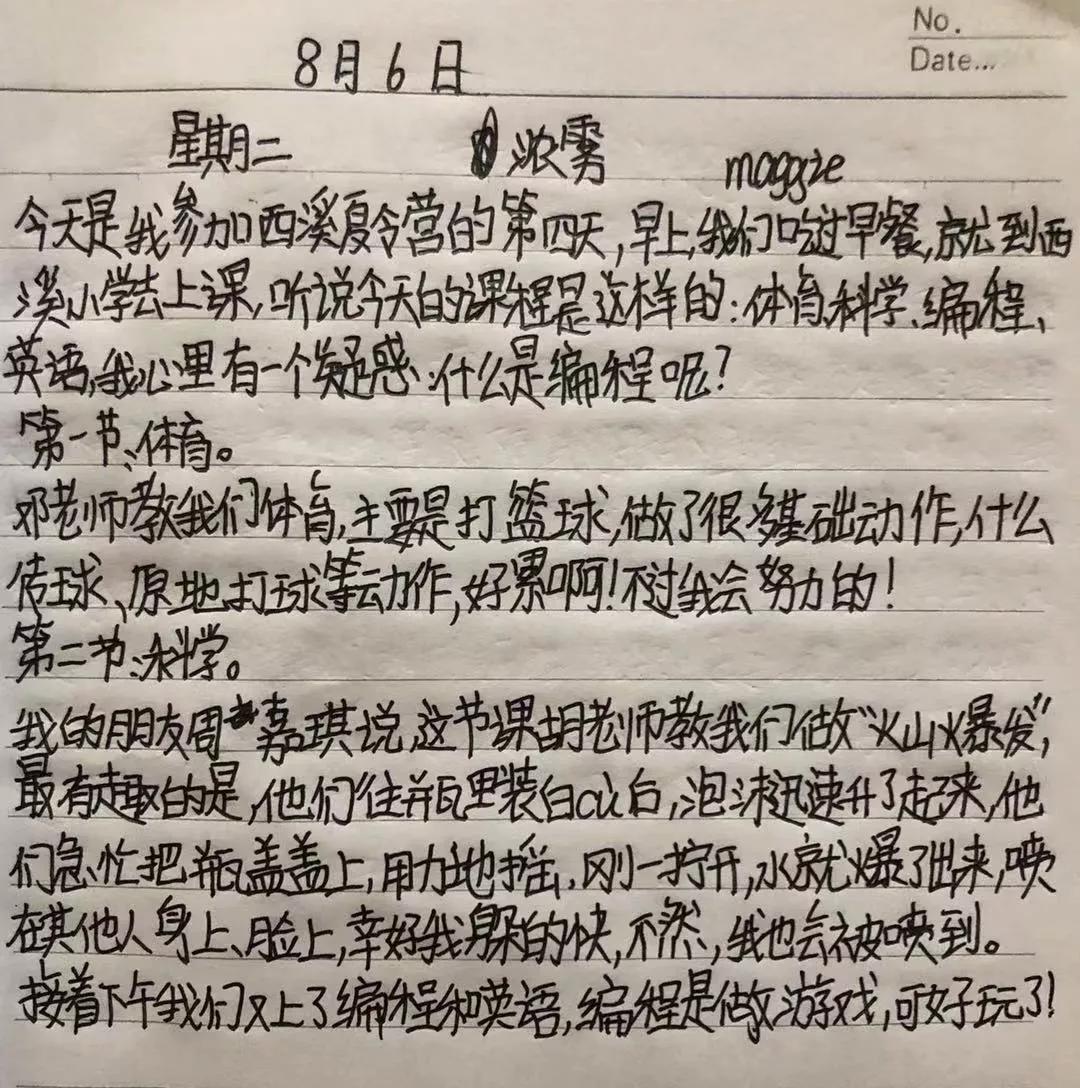 No.
Date...
8月6日
星期二 浓雾 maggie
今天是我参加西溪夏令营的第四天,早上,我们吃过早餐,就到西
溪小学去上课,听说今天的课程是这样的:体育、科学、编程、
英语,我心里有一个疑惑:什么是编程呢?
第一节:体育。
邓老师教我们体育,主要是打篮球,做了很多基础动作,什么
传球、原地打球等动作,好累啊!不过我会努力的!
第二节:科学。
我的朋友周嘉琪说,这节课胡老师教我们做“火山爆发”,
最有趣的是,他们往瓶里装白cù后,泡沫迅速升了起来,他
们急忙把瓶盖盖上,用力地摇,刚一拧开,水就爆了出来,喷
在其他人身上、脸上,幸好我躲的快,不然,我也会被喷到。
接着下午我们又上了编程和英语,编程是做游戏,可好玩了!